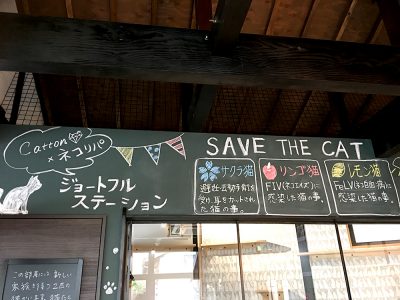 Catton
×ネコリパ
ジョートフル
ステーション
SAVE THE CAT
サクラ猫
避妊去勢手術を
受け、耳をカットされ
た猫の事。
リンゴ猫
FIV(ネコエイズ)に
感染した猫の事。
レモン猫
FeLV(ネコ白血病)に
感染した猫の事。
この部屋には新しい
家族を待つ2匹の